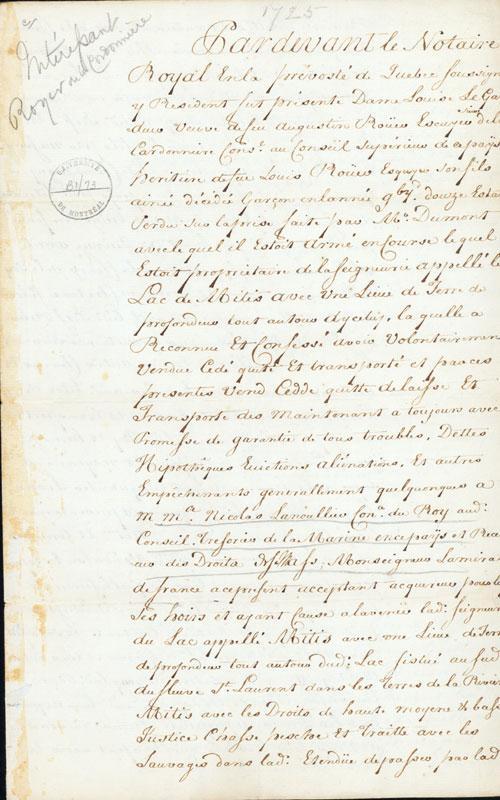 1725
Intéressant
Royer de la Cardonnière
UNIVERSITÉ
DE MONTRÉAL
Pardevant le Notaire
Royal En la prévosté de Quebec soussign
y Resident fut présente Dame Louise Le Ga
deur Veuve de feu Augustin Roüer Escuyer Sieur de la
Cardonniere Conser. au Conseil Superieur de ce pays
heritiere de feu Louis Roüer Escuyer son fils
ainé décédé Garçon en lanné gbre. douze Estan
Perdu sur la prise faite par Mr. Dumont
avec le quel il Estoit Armé en Course le quel
Estoit propriétaire de la Seigneurie appellée le
Lac de Mitis avec Une Lieue de Terre de
profondeur tout autour dyceluy, la quelle a
Reconnue Et Confessé avoir Volontairemen
Vendue Cedé quité Et transporté et par ces
presentes Vend Cedde quitte delaisse Et
Transporte des Maintenant a toujours avec
Promesse de garantie de tous troubles, Dettes
Hipothêques Evictions alienations, Et autres
Empêchemants generallement quelquonques a
M Mre. Nicolas Lanoullier Conser. du Roy aud:
Conseil Tresorier de la Marine en ce païs et Rece
veur des Droits Monseigneur Lamiral
de france a ce present acceptant acquereur pour lu
Ses hoirs et ayant Cause a lavenir lad: Seigneurie
du Lac appellé Mitis avec une Lieue de Terre
de profondeur tout autour dud: Lac sistué au sud
du fleuve St. Laurent dans les Terres de la Riviere
Mitis avec les Droits de haute moyene & basse
Justice Chasse pesche et Traitte avec les
Sauvages dans lad: Etendüe de passer par lad